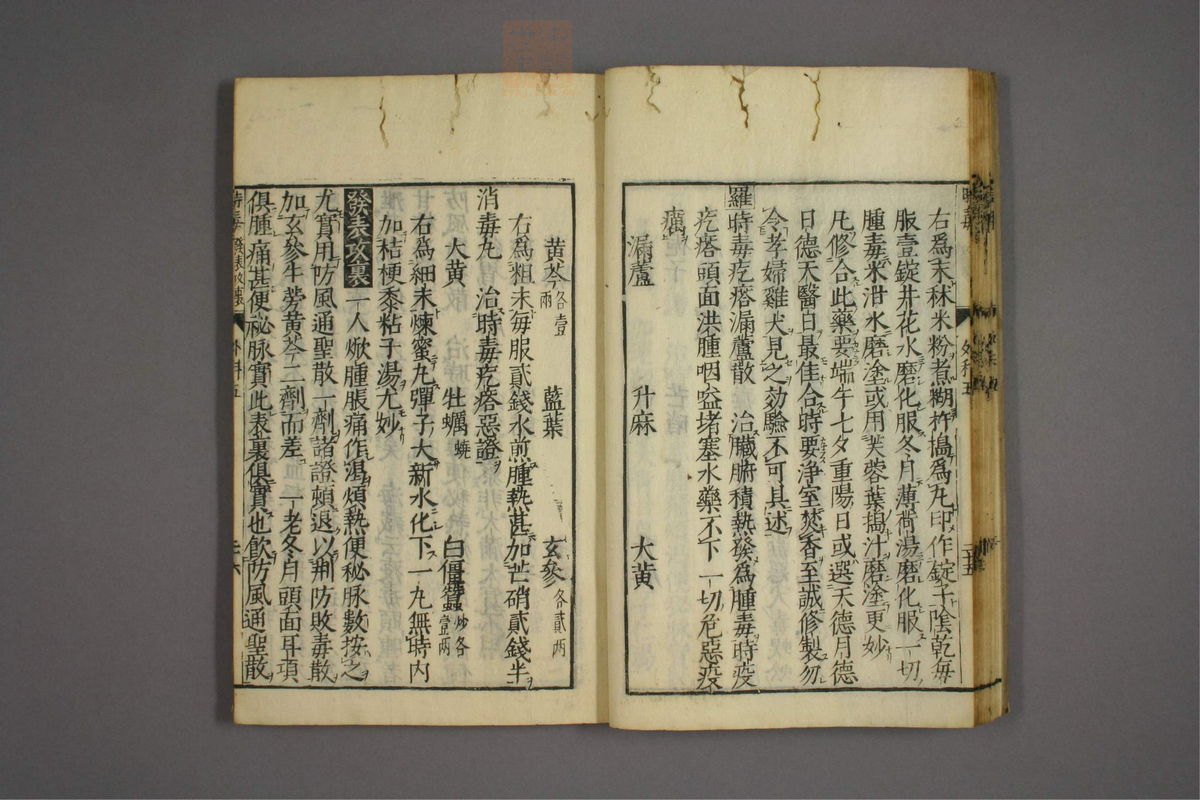 右爲末秫米粉煮糊杵搗爲丸印作錠子陰乾每
服壹錠井花水磨化服冬月薄荷湯磨化服一切
腫毒米泔水磨塗或用芙蓉葉搗汁磨塗更妙
凡修合此藥要端午七夕重陽日或選天德月德
日德天醫日最佳合時要淨室焚香至誠修製勿
令孝婦雞犬見之効驗不可具述
羅時毒疙瘩漏蘆散 治臟腑積熱發爲腫毒時疫
疙瘩頭面洪腫咽嗌堵塞水藥不下一切危惡疫
癘
漏蘆 升麻 大黄
黄芩各壹兩 藍葉 玄參各貳兩
右爲粗末每服貳錢水煎腫熱甚加芒硝貳錢半
消毒丸 治時毒疙瘩惡證
大黄 牡蠣燒 白僵蠶炒各壹兩
右爲細末煉蜜丸彈子大新水化下一丸無時內
加桔梗黍粘子湯尤妙
發表攻裏 一人焮腫脹痛作渴煩熱便秘脉數按之
尤實用防風通聖散一劑諸證頓退以荆防敗毒散
加玄參牛蒡黄芩二劑而差 一老冬月頭面耳項
俱腫痛甚便秘脉實此表裏俱實也飲防風通聖散
時毒 發表攻裏 外科五